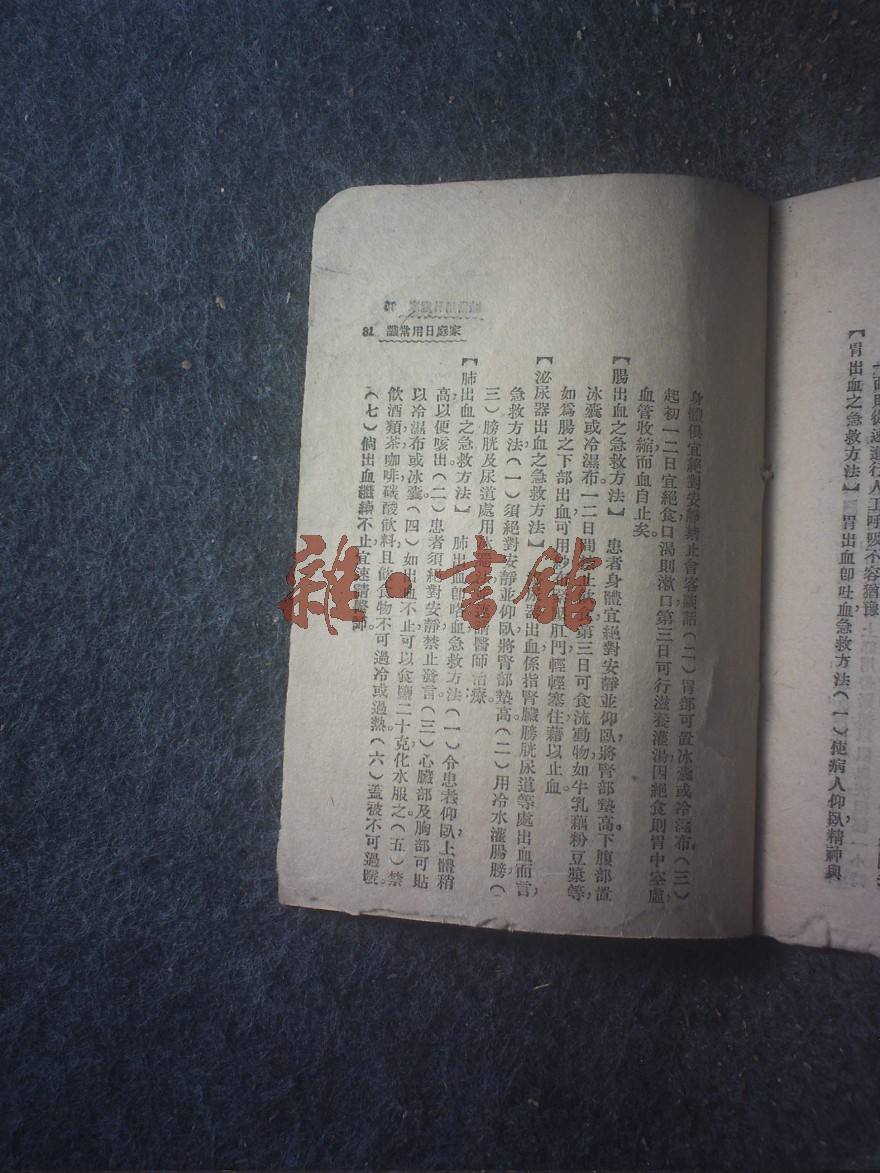 一面則從速進行人工呼吸不容猶豫
【胃出血之急救方法】 胃出血卽吐血急救方法（一）使病人仰臥精神與
家庭日用常識 81
身體俱宜絕對安靜禁止會客談話（二）胃部可置冰囊或冷濕布（三）
起初一二日宜絕食口渴則漱口第三日可行滋養灌湯因絕食則胃中空虛
血管收縮而血自止矣。
【腸出血之急救方法】 患者身體宜絕對安靜並仰臥將腎部墊高。下腹部置
冰囊或冷濕布一二日間 第三日可食流動物如牛乳藕粉豆漿等，
如爲腸之下部出血可用 肛門輕輕塞住藉以止血
【泌尿器出血之急救方法】 尿器出血係指腎臟膀胱尿道等處出血而言，
急救方法（一）須絕對安靜並仰臥將腎部墊高。（二）用冷水灌腸（
三）膀胱及尿道處用 請醫師治療。
【肺出血之急救方法】 肺出血卽咯血急救方法（一）令患者仰臥，上體稍
高，以便咳出（二）患者須絕對安靜禁止發言（三）心臟部及胸部可貼
以冷濕布或冰囊。（四）如出血不止可以食鹽二十克化水服之（五）禁
飲酒類茶咖啡碳酸飲料且飲食物不可過冷或過熱（六）蓋被不可過暖
（七）倘出血繼續不止宜速請醫師。
雜·書館